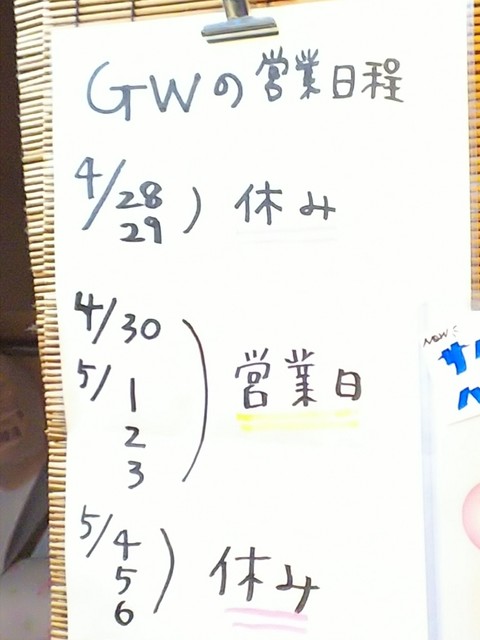 GWの営業日程
4/28
29
休み
4/30
5/1
2
3
営業日
5/4
5
6
休み
NEW
サ